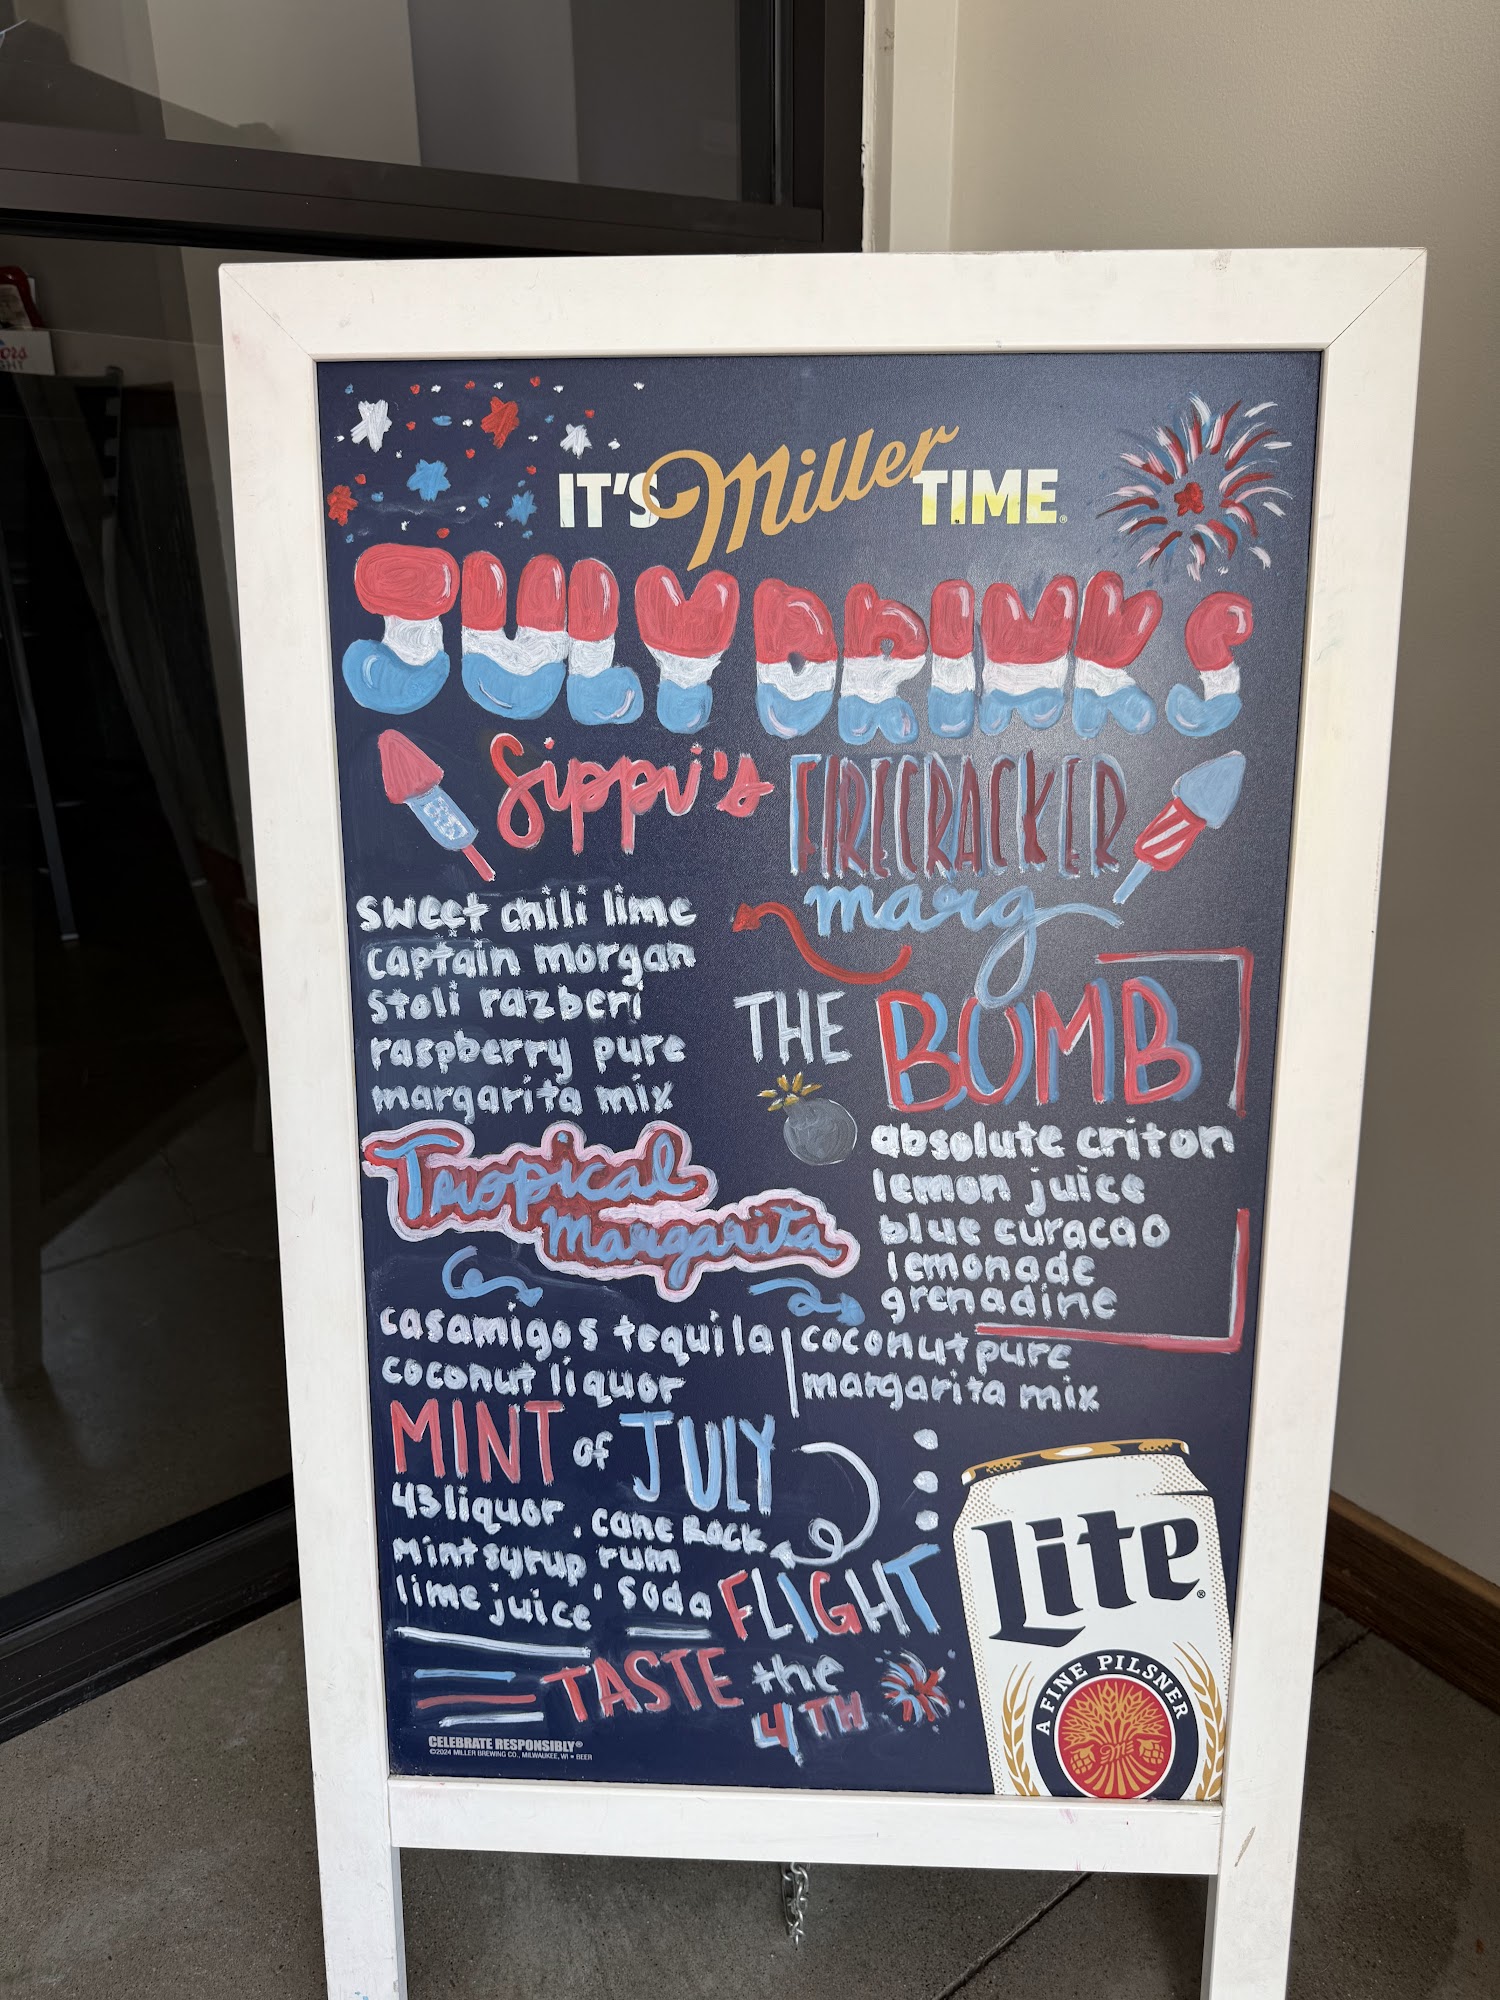 IT'S Miller TIME®
JULY DRINKS
Sippi's FIRECRACKER
marg
sweet chili lime
captain morgan
stoli razberi
raspberry pure
margarita mix
THE BOMB
absolute criton
lemon juice
blue curacao
lemonade
grenadine
Tropical
Margarita
casamigos tequila
coconut liquor
coconut pure
margarita mix
MINT of JULY
43 liquor, cane Rock
mint syrup, rum
lime juice, soda
FLIGHT
TASTE the
4TH
Lite®
A FINE PILSNER
CELEBRATE RESPONSIBLY®
©2024 MILLER BREWING CO., MILWAUKEE, WI • BEER